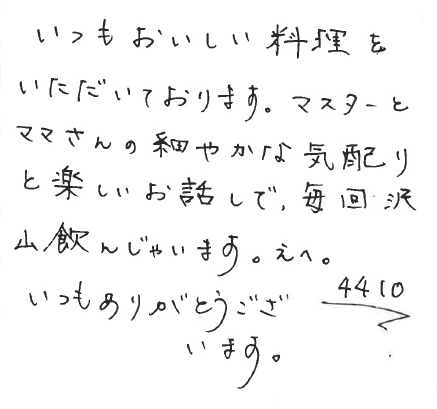 いつもおいしい料理を
いただいております。マスターと
ママさんの細やかな気配り
と楽しいお話しで、毎回沢
山飲んじゃいます。えへ。
いつもありがとうござ
います。
4410